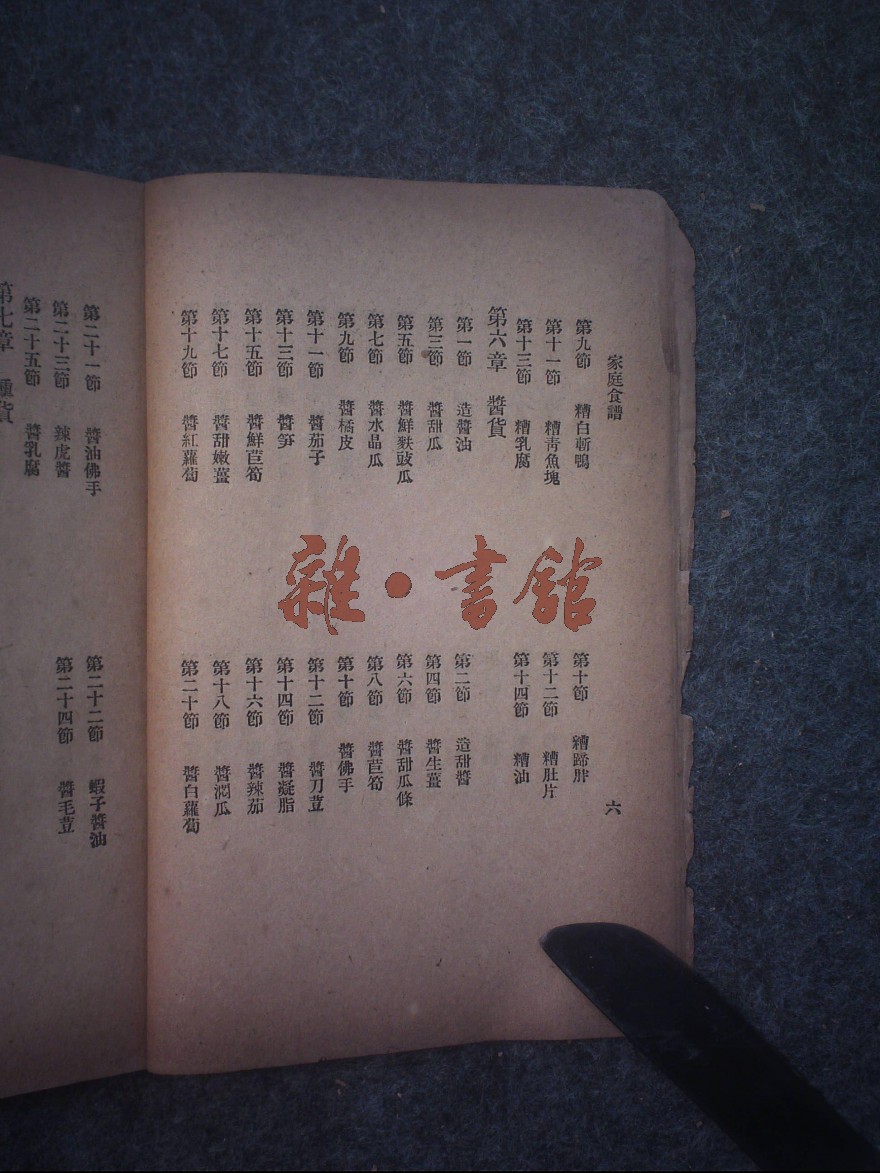 家庭食譜
六
第九節 糟白斬鴨
第十節 糟蹄胖
第十一節 糟青魚塊
第十二節 糟肚片
第十三節 糟乳腐
第十四節 糟油
第六章 醬貨
第一節 造醬油
第二節 造甜醬
第三節 醬甜瓜
第四節 醬生薑
第五節 醬鮮麩豉瓜
第六節 醬甜瓜條
第七節 醬水晶瓜
第八節 醬莒筍
第九節 醬橘皮
第十節 醬佛手
第十一節 醬茄子
第十二節 醬刀荳
第十三節 醬笋
第十四節 醬凝脂
第十五節 醬鮮莒筍
第十六節 醬辣茄
第十七節 醬甜嫩薑
第十八節 醬潤瓜
第十九節 醬紅蘿蔔
第二十節 醬白蘿蔔
第二十一節 醬油佛手
第二十二節 蝦子醬油
第二十三節 辣虎醬
第二十四節 醬毛荳
第二十五節 醬乳腐
第七章
雜·書館